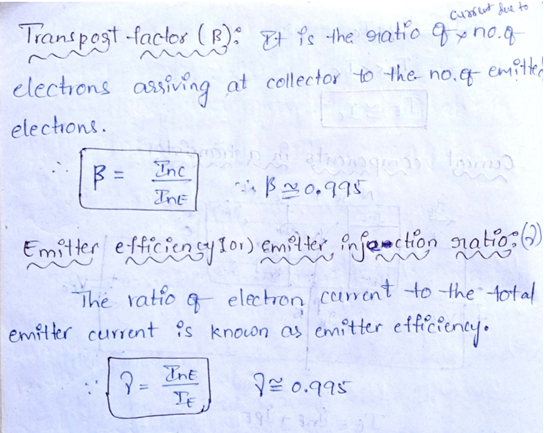 current due to
Transport factor (β): It is the ratio of x no. of
electrons arriving at collector to the no. of emitted
electrons.
∴ β = InC / InE ∴ β ≅ 0.995
Emitter efficiency (or) emitter injection ratio: (γ)
The ratio of electron current to the total
emitter current is known as emitter efficiency.
∵ γ = InE / IE γ ≅ 0.995